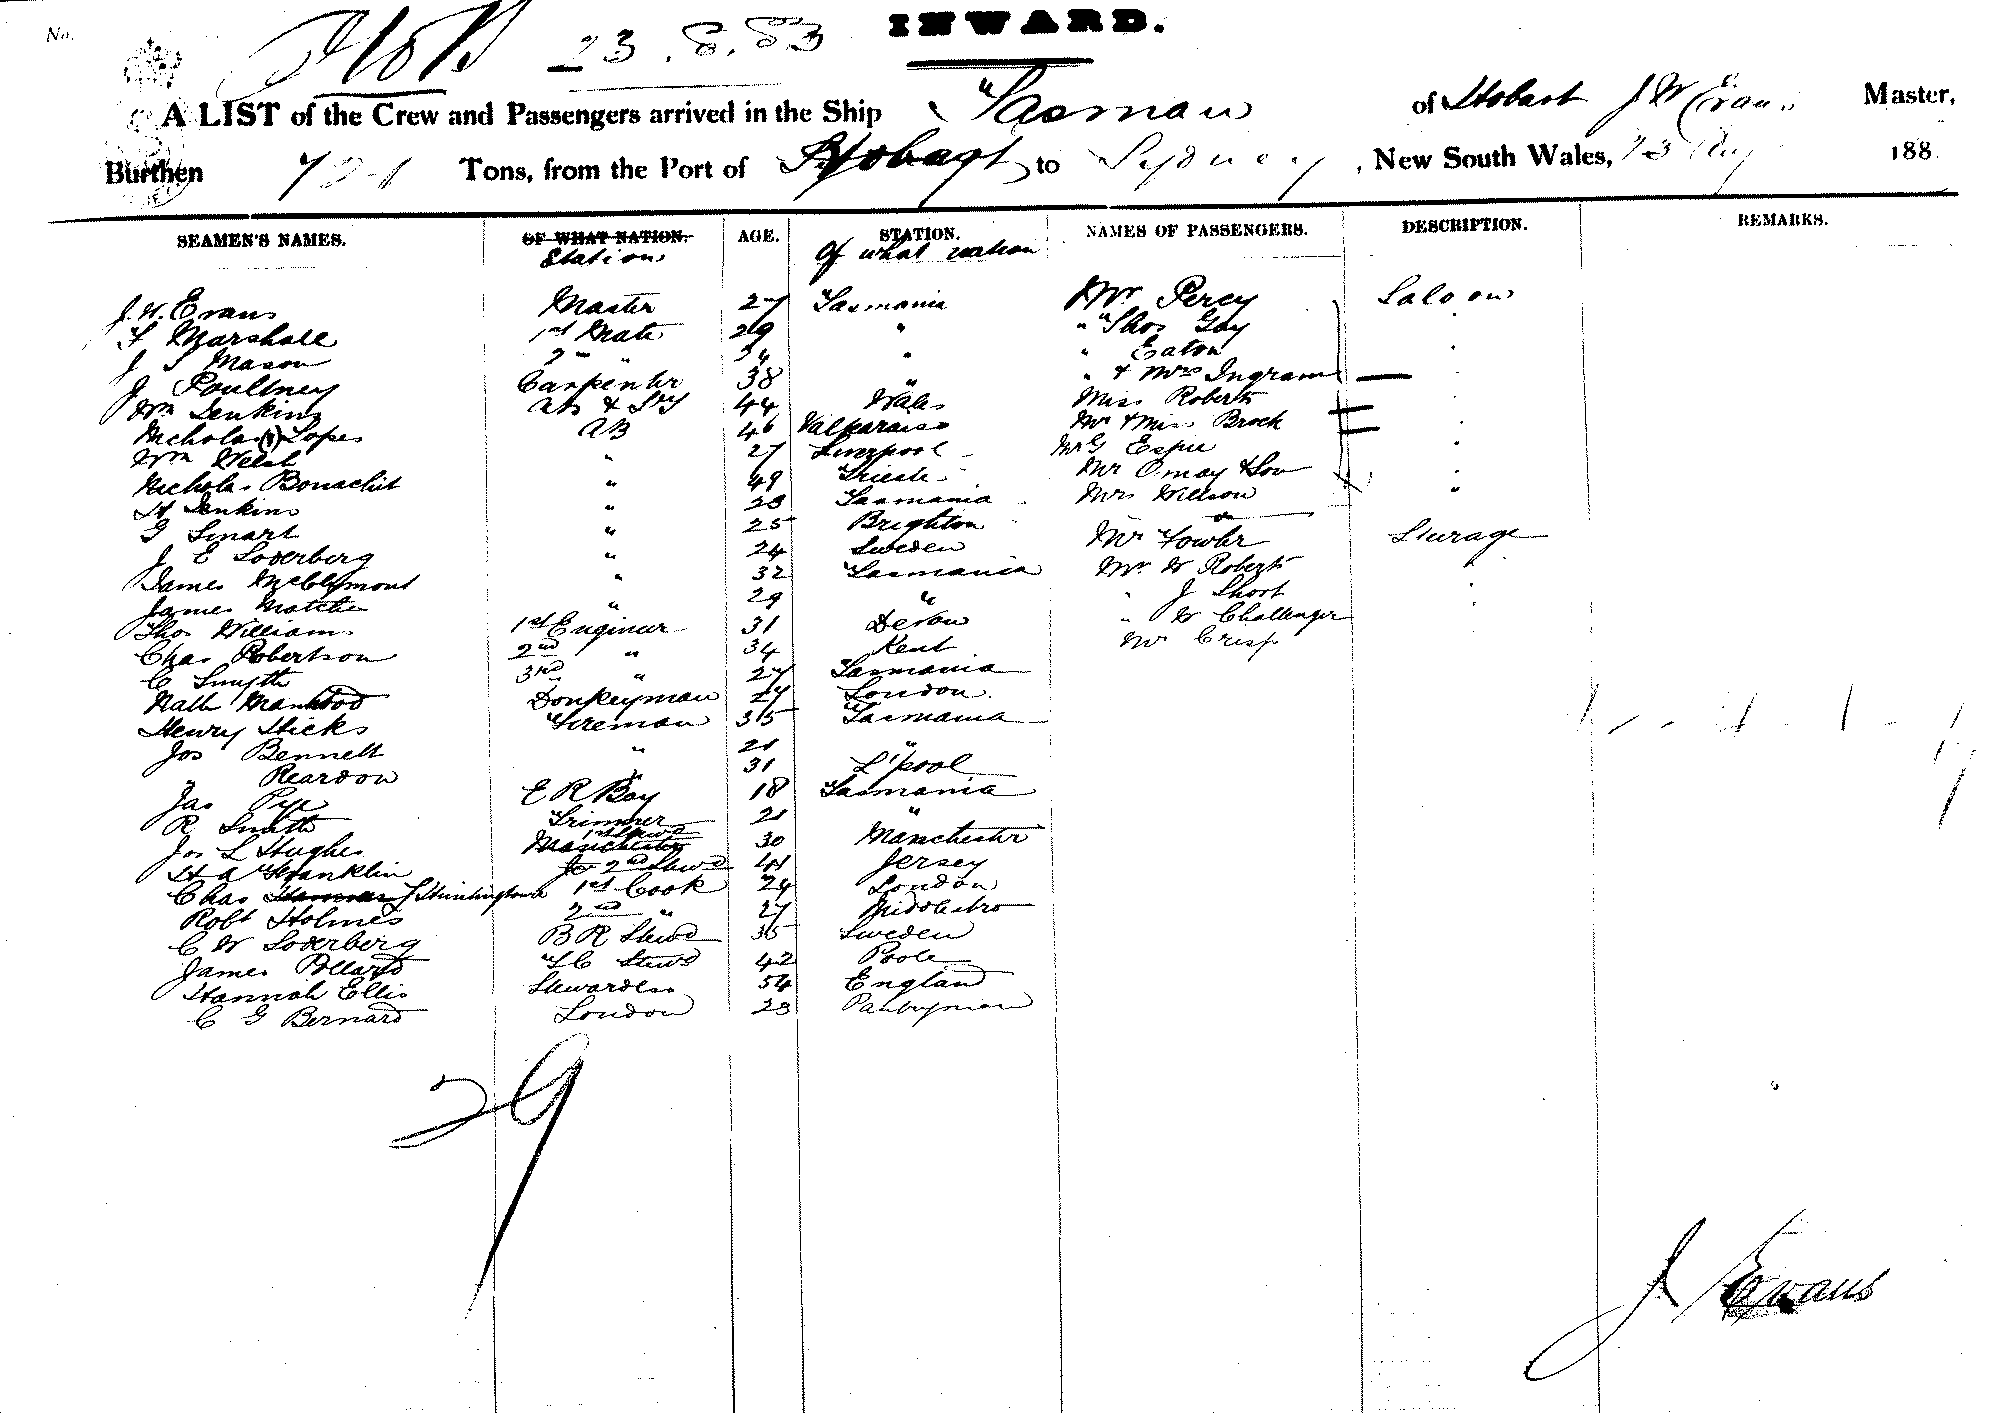 No.
Hob 23.8.83
INWARD.
A LIST of the Crew and Passengers arrived in the Ship Tasman of Hobart J W Evans Master,
Burthen Tons, from the Port of Hobart to Sydney, New South Wales, 23 Aug 188
SEAMEN'S NAMES. OF WHAT NATION. AGE. STATION. NAMES OF PASSENGERS. DESCRIPTION. REMARKS.
Station Of what nation
J. W. Evans Master 27 Tasmania Mr Percy Saloon
T Marshall 1st Mate 29 " " Thos Guy "
J S Mason 2nd " 34 " " Eaton "
J Poultney Carpenter 38 " " & Mrs Ingram
Wm Jenkins AB & Lry 44 Wales Miss Roberts
Nicholas Lopes AB 46 Valparaiso Mr & Miss Brock "
Wm Welsh " 27 Liverpool Mr G Espie "
Nicholas Bonachit " 49 Trieste Mr Omay & Son "
H Jenkins " 23 Tasmania Mrs Willson "
G Smart " 25 Brighton
J E Soderberg " 24 Sweden Mr Fowler Steerage
James McClymont " 32 Tasmania Mr W Roberts "
James Matthe " 29 " " J Short "
Thos Williams 1st Engineer 31 Devon " W Challenger
Chas Robertson 2nd " 34 Kent Mr Crisp
C Smyth 3rd " 27 Tasmania
Nath Manhood Donkeyman 27 London
Henry Hicks Fireman 35 Tasmania
Jos Bennett " 21 "
Reardon " 31 L'pool
Jas Pye E R Boy 18 Tasmania
R Smith Trimmer 21 "
Jos L Hughes Manchester 1st Stewd 30 Manchester
H A Franklin 2nd Stewd 41 Jersey
Chas J Huntingtower 1st Cook 24 London
Robt Holmes 2nd " 27 Middlesbro
C W Soderberg B R Stewd 35 Sweden
James Pollard F C Stewd 42 Poole
Hannah Ellis Stewardess 54 England
C G Bernard London 23 Pantryman
29
J Evans